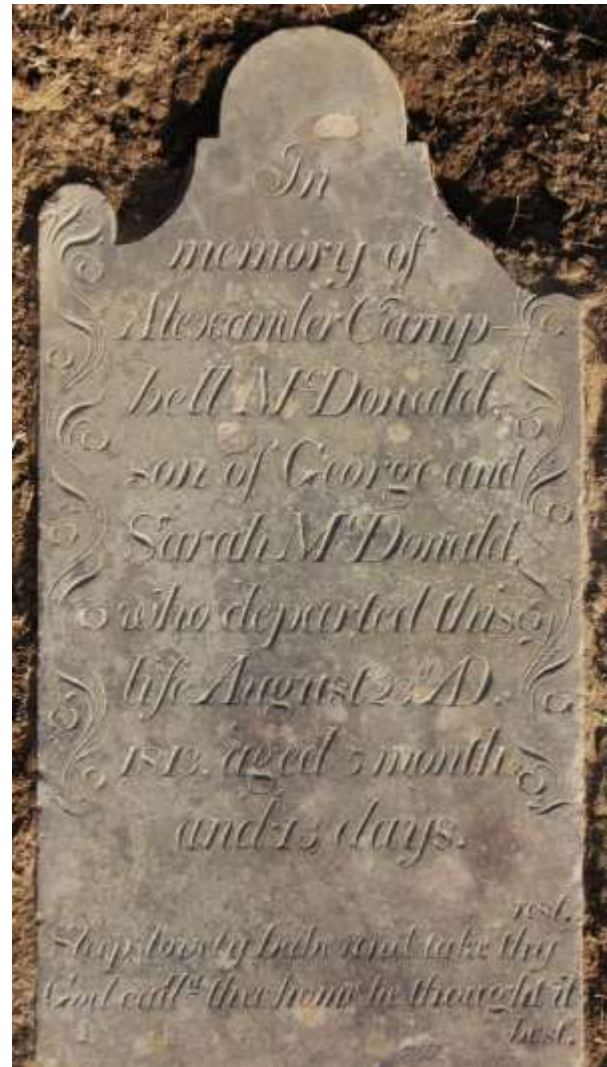 In
memory of
Alexander Camp-
bell McDonald,
son of George and
Sarah McDonald,
who departed this
life August 23d AD.
1813. aged 5 month
and 13 days.
rest.
Sleep lovely babe and take thy
God call'd thee home he thought it
best.